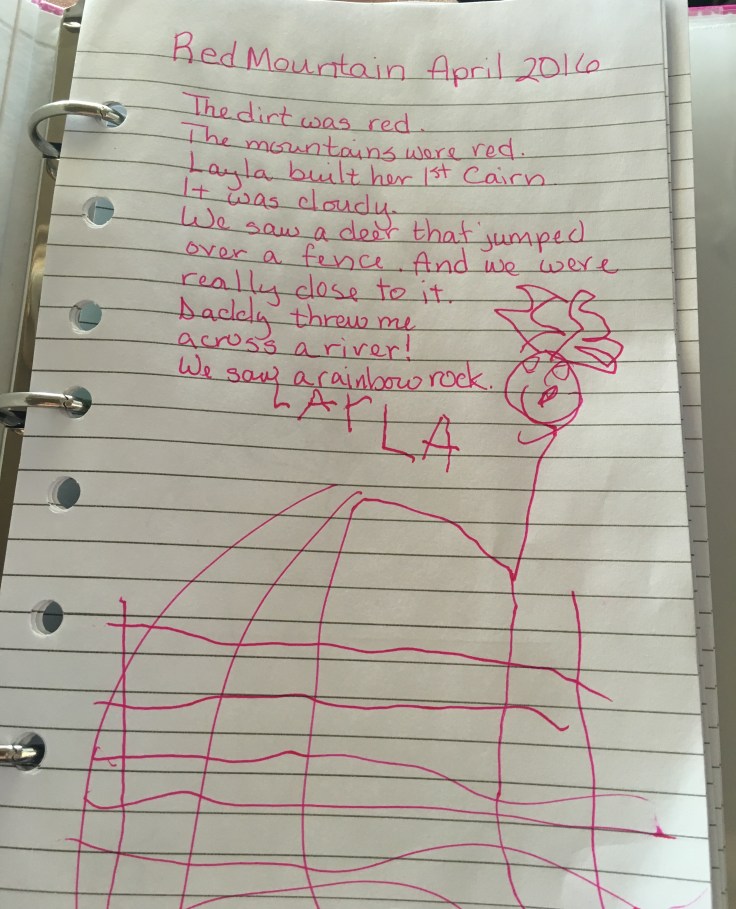 Red Mountain April 2016
The dirt was red.
The mountains were red.
Layla built her 1st Cairn
It was cloudy.
We saw a deer that jumped
over a fence. And we were
really close to it.
Daddy threw me
across a river!
We saw a rainbow rock.
LAYLA